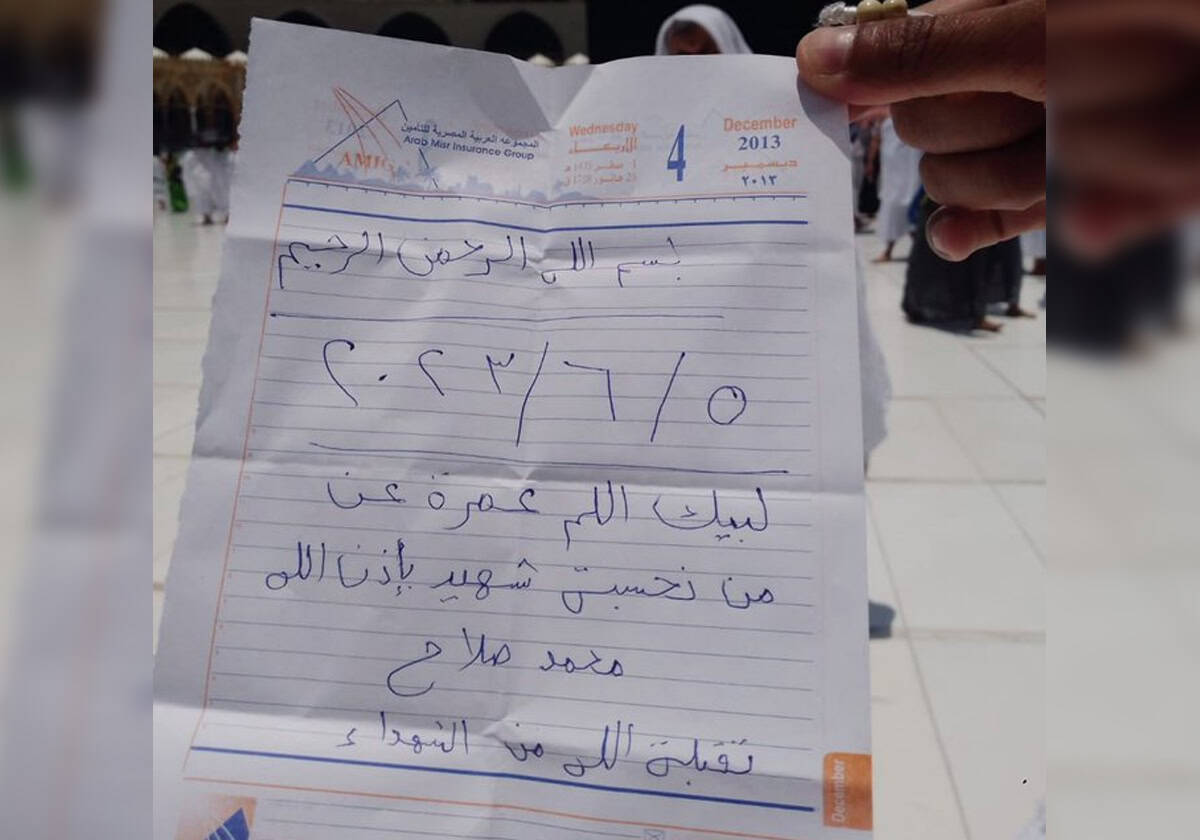 المجموعة العربية المصرية للتأمين
Arab Misr Insurance Group
AMIG
Wednesday
الأربعاء
4
December
2013
ديسمبر
٢٠١٣
بسم الله الرحمن الرحيم
٢٠٢٣/٦/٥
لبيك اللهم عمرة عن
من نحسبة شهيد بإذن الله
محمد صلاح
تقبلة الله من الشهداء
December